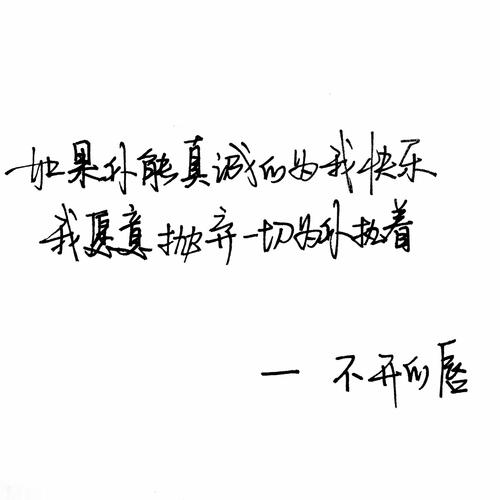 如果你能真诚的为我快乐
我愿意抛弃一切为你执着
— 不开的唇